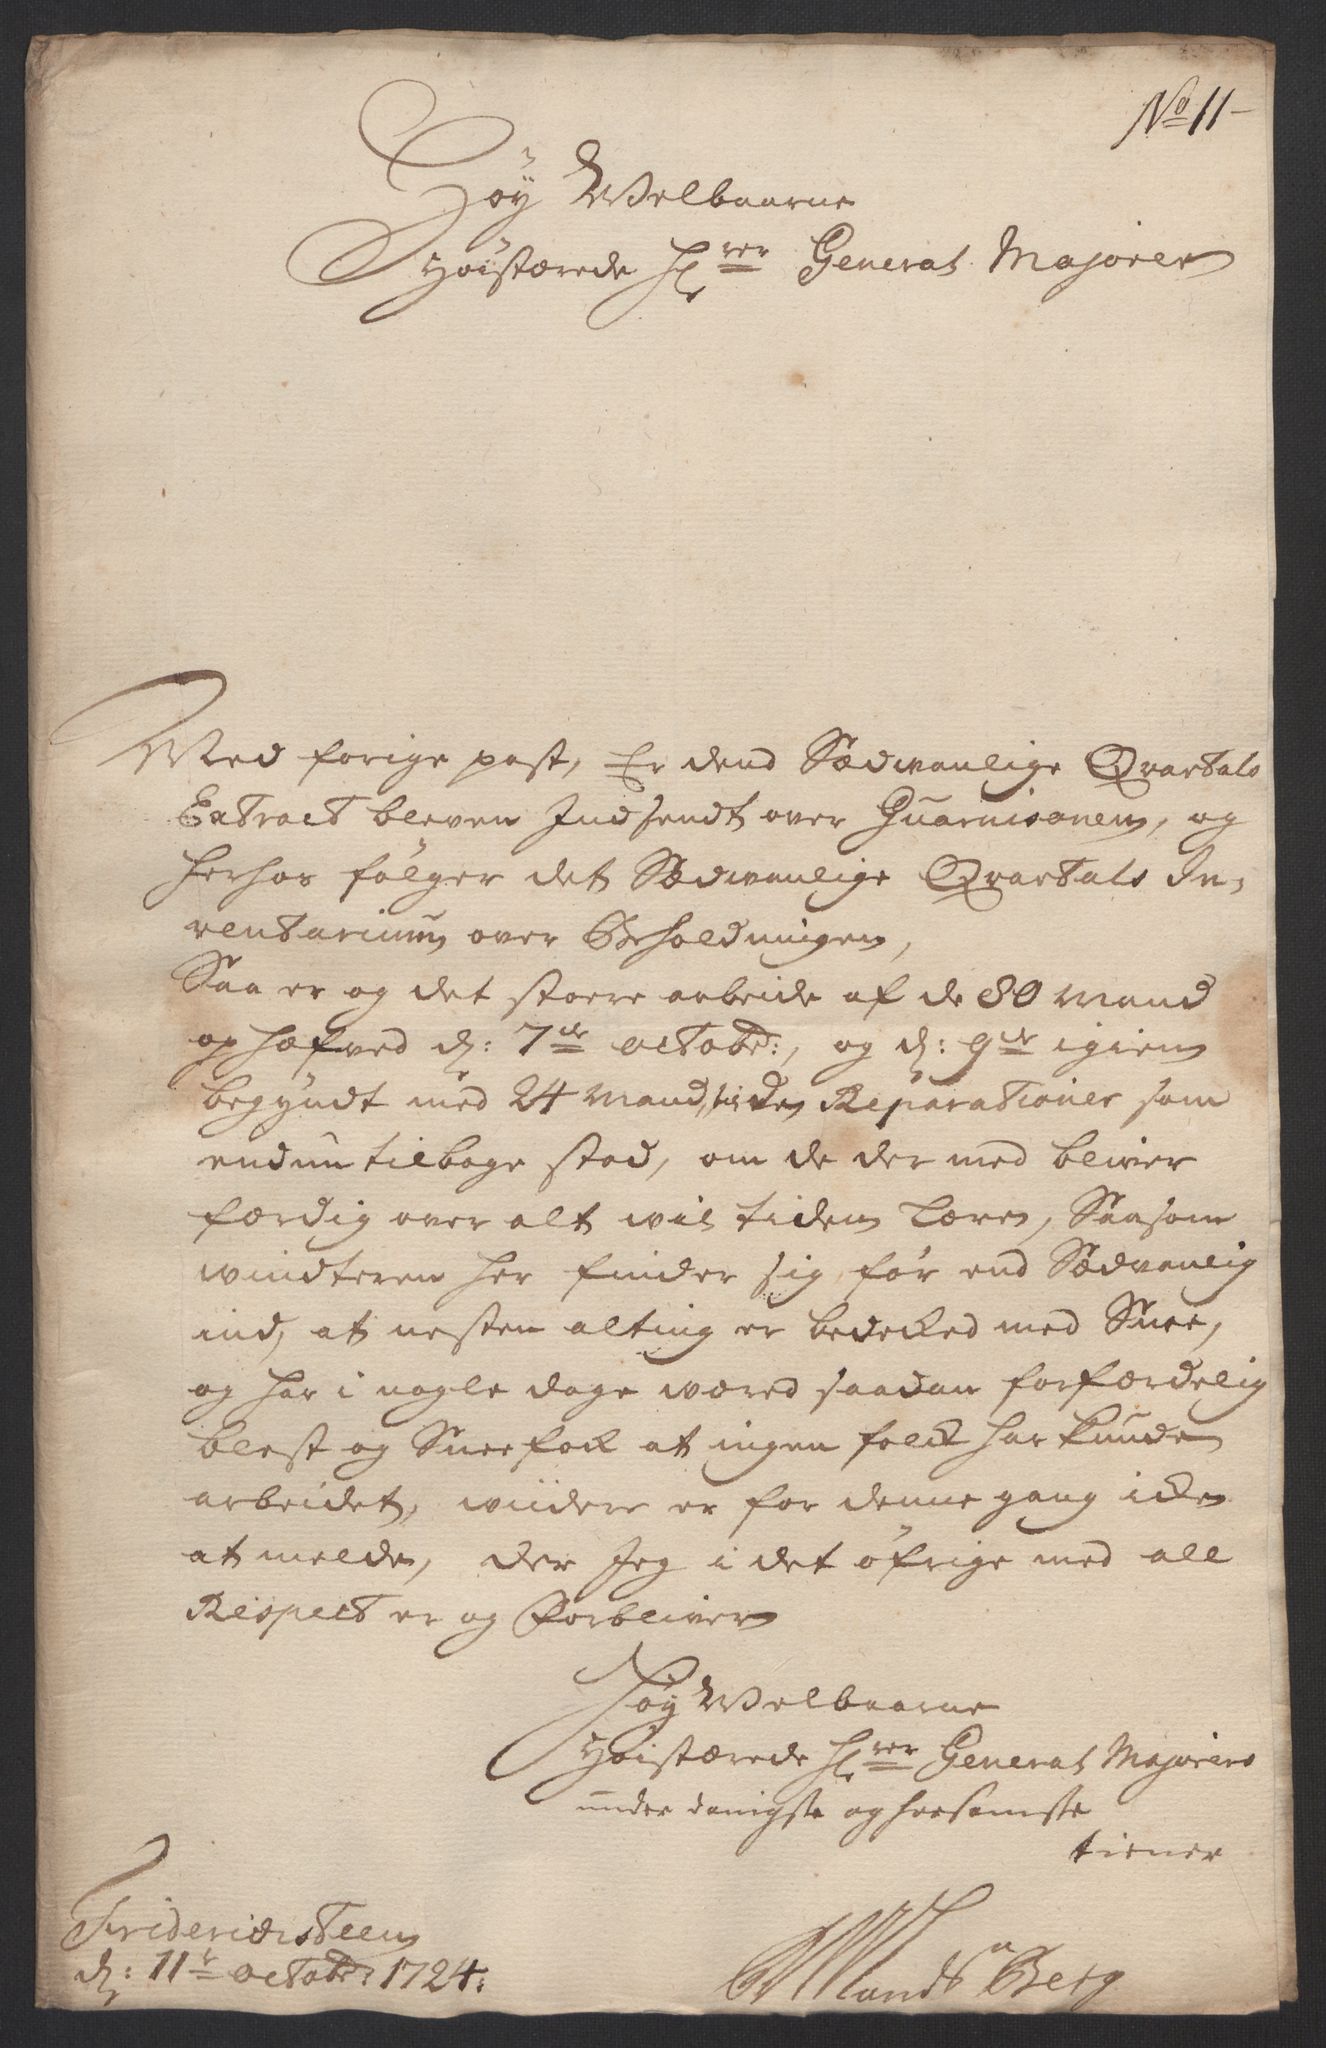 No 11-
Høÿ Welbaarne
Høistærede Hr rer General Majorer
Med forige post, Er dend Sædvanlige Qvartals
Extract bleven Indsendt over Guarnisonen, og
herhos følger det Sædvanlige Qvartals In-
ventarium over Beholdningen,
Saa er og det stoere arbeide af de 80 mand
ophæfved d: 7de octobr:, og d: 9de igien
begyndt med 24 mand, til de Reparationer som
endnu tilbage stod, om de der med bliver
færdig over alt vil tiden Lære, Saasom
windteren her finder sig før end Sædvanlig
ind, at nesten alting er bedecked med Snee,
og har i nogle dage været saadan forfærdelig
blest og Sneefock at ingen folck har kunde
arbeidet, wiidere er for denne gang icke
at melde, der Jeg i det øfrige med all
Respect er og Forbliver
Høÿ Welbaarne
Høistærede Hr rer General Majorers
under danigste og hørsomste
tiener
Fridericksteen
d: 11te octobr: 1724:
Berg